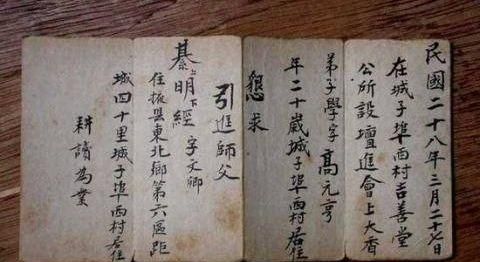 民國二十八年三月二十七日
在城子埠西村吉善堂
公所設壇進會上大香
弟子學字 高元亨
年二十歲城子埠西村居住
懇求
引進師父
綦上明下經 字文卿
住掖縣東北鄉第六區距
城四十里城子埠西村居住
耕讀為業